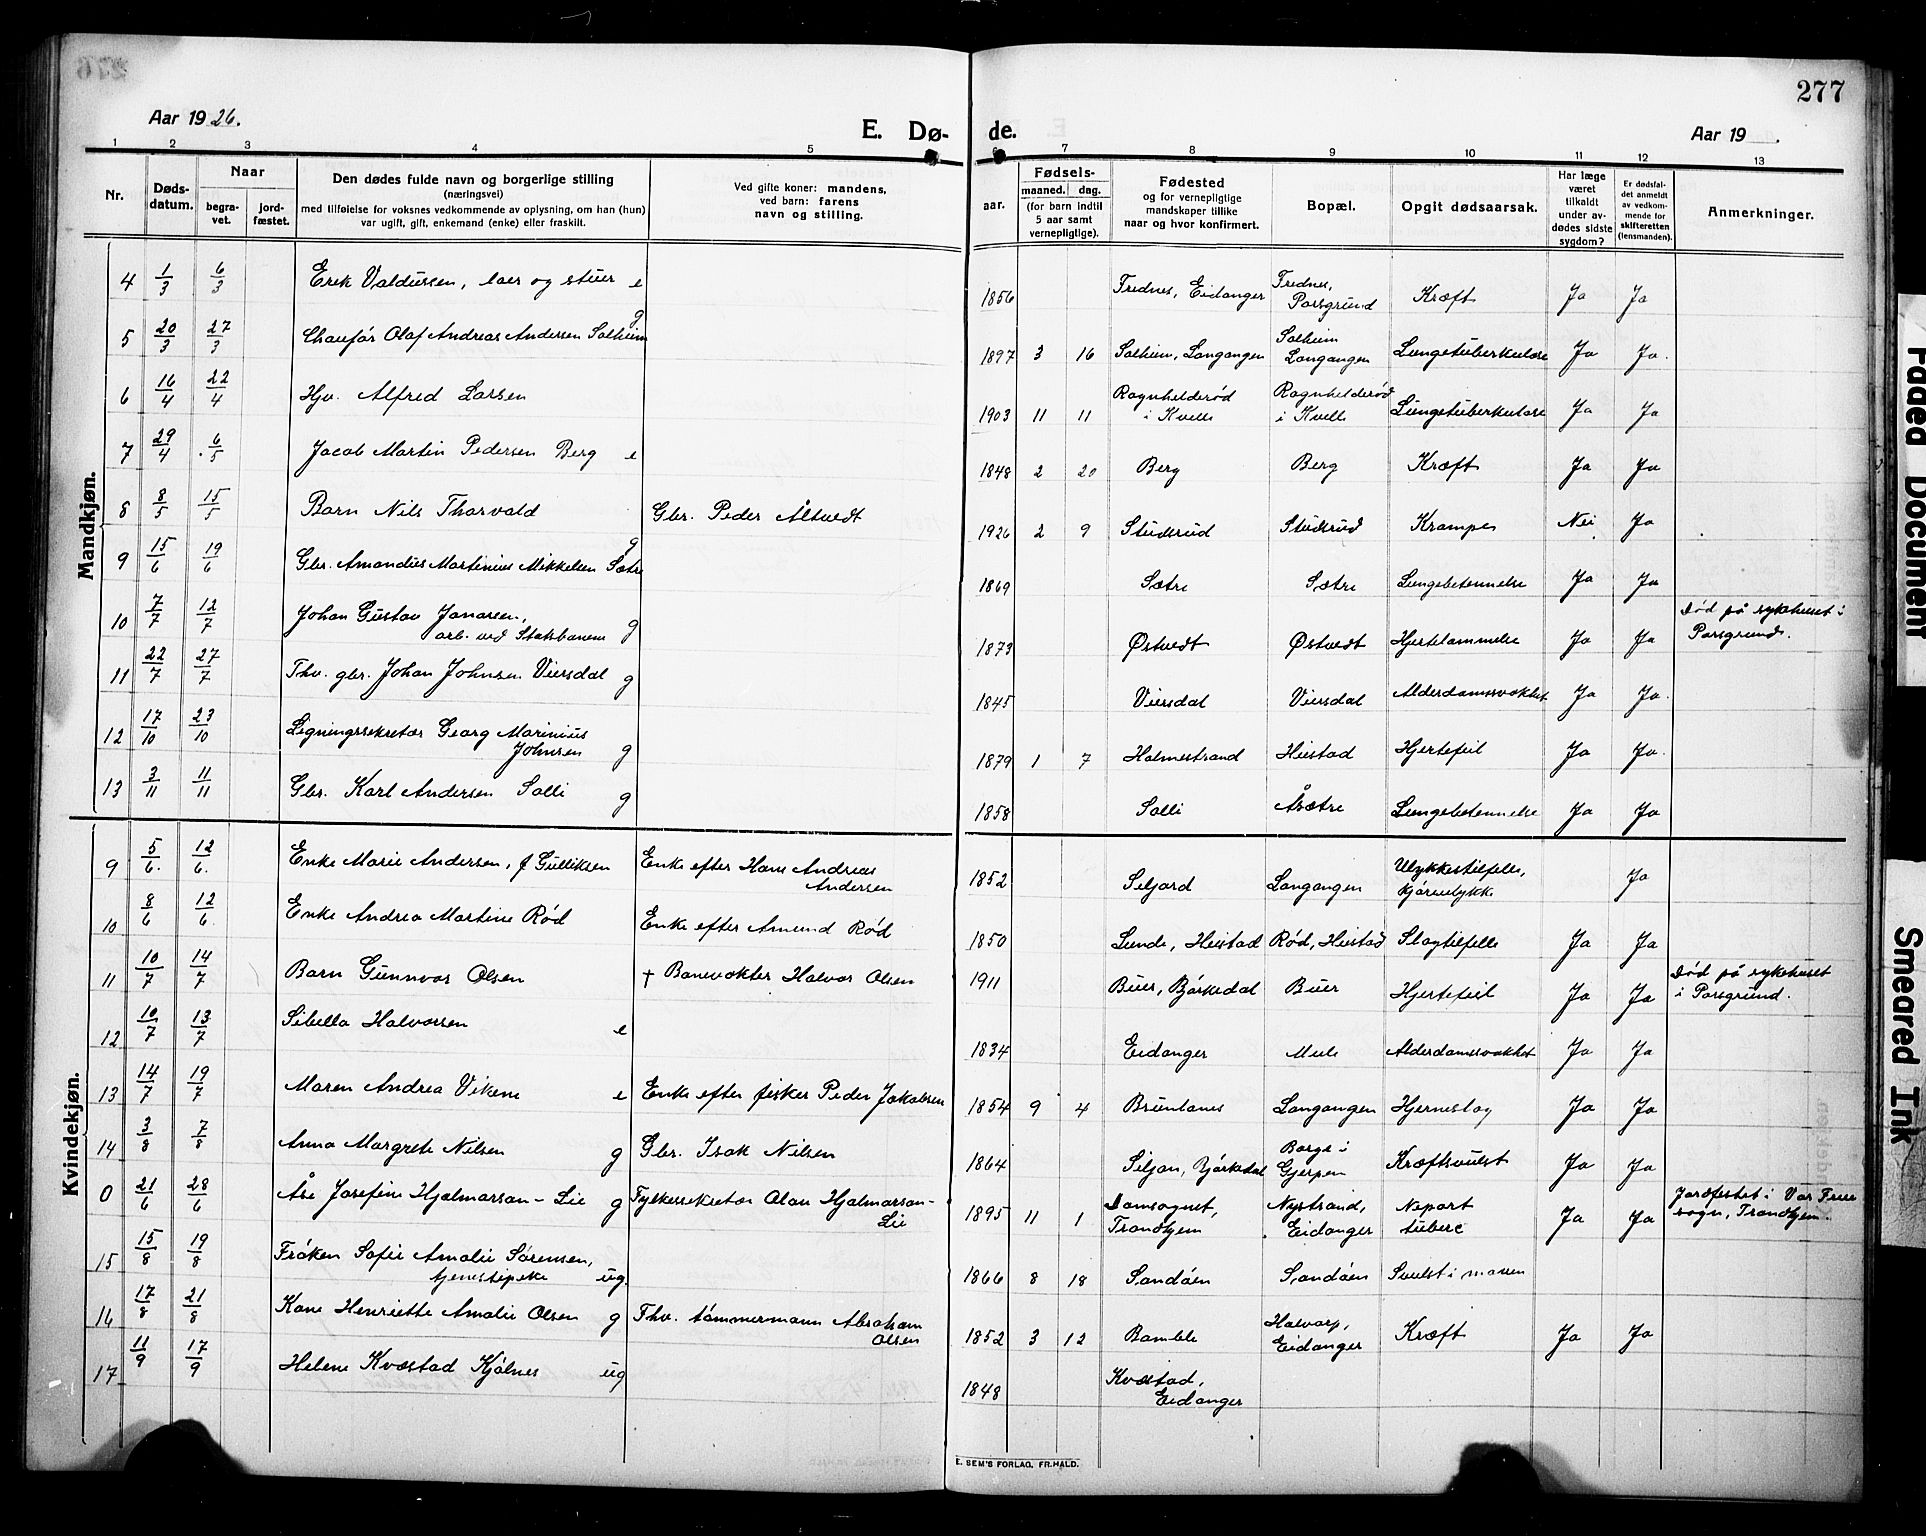 276
277
Aar 1926.
E. Dø-
de.
Aar 19
1 2 3 4 5 6 7 8 9 10 11 12 13
Nr.
Døds-
datum.
Naar
begra-
vet.
jord-
fæstet.
Den dødes fulde navn og borgerlige stilling
(næringsvei)
med tilføielse for voksnes vedkommende av oplysning, om han (hun)
var ugift, gift, enkemand (enke) eller fraskilt.
Ved gifte koner: mandens,
ved barn: farens
navn og stilling.
Fødsels-
aar.
maaned. dag.
(for barn indtil
5 aar samt
vernepligtige).
Fødested
og for vernepligtige
mandskaper tillike
naar og hvor konfirmert.
Bopæl.
Opgit dødsaarsak.
Har læge
været
tilkaldt
under av-
dødes sidste
sygdom?
Er dødsfal-
det anmeldt
av vedkom-
mende for
skifteretten
(lensmanden).
Anmerkninger.
Mandkjøn.
4 1/3 6/3 Erik Valdursen, laer og stuer e 1856 Frednes, Eidanger Frednes, Porsgrund Kræft Ja Ja
5 20/3 27/3 Chaufør Olaf Andreas Andersen Solheim g 1897 3 16 Solheim, Langangen Solheim Langangen Lungetuberkulose Ja Ja.
6 16/4 22/4 Hjv. Alfred Larsen 1903 11 11 Ragnhelderød i Kvelle Ragnhelderød i Kvelle Lungetuberkulose Ja Ja
7 29/4 6/5 Jacob Martin Pedersen Berg e 1848 2 20 Berg Berg Kræft Ja Ja
8 8/5 15/5 Barn Nils Thorvald Gbr. Peder Åltvedt 1926 2 9 Stukrud Stukrud Krampe Nei Ja
9 15/6 19/6 Gbr. Amandus Martinius Mikkelsen Sætre g 1869 Sætre Sætre Lungebetennelse Ja Ja
10 7/7 12/7 Johan Gustav Jonassen, arb. ved Statsbanene g 1873 Østvedt Østvedt Hjertelammelse Ja Ja Død på sykehuset i Porsgrund.
11 22/7 27/7 Fhv. gbr. Johan Johnsen Viersdal g 1845 Viersdal Viersdal Alderdomssvakhet Ja Ja.
12 17/10 23/10 Ligningssekretær Georg Marinius Johnsen g 1879 1 7 Holmestrand Heistad Hjertefeil Ja Ja.
13 3/11 11/11 Gbr. Karl Andersen Solli g 1858 Solli Åsætre Lungebetennelse Ja Ja
Kvindekjøn.
9 5/6. 12/6. Enke Marie Andersen, f Gulliksen Enke efter Hans Andreas Andersen 1852 Seljord Langangen Ulykkestilfelle, kjøreulykke Ja
10 8/6 12/6. Enke Andrea Martine Rød Enke efter Amund Rød 1850 Lunde, Heistad Rød, Heistad Slagtilfelle Ja Ja
11 10/7 14/7 Barn Gunnvor Olsen † Banevokter Halvor Olsen 1911 Buer, Bjørkedal Buer Hjertefeil Ja Ja Død på sykehuset i Porsgrund.
12 10/7 13/7 Sibella Halvorsen e 1834 Eidanger Mule Alderdomssvakhet Ja Ja
13 14/7 19/7 Maren Andrea Vikene e Enke efter fisker Peder Jakobsen 1854 9 4 Brunlanes Langangen Hjerneslag Ja Ja
14 3/8 7/8 Anna Margrete Nilsen g Gbr. Isak Nilsen 1864 Siljan, Bjørkedal Borge i Gjerpen Kræftsvulst Ja Ja
0 21/6 28/6 Åse Josefine Hjalmarson-Lie g Fylkessekretær Olav Hjalmarson-Lie 1895 11 1 Domsognet, Trondhjem Nystrand, Eidanger Ja Ja Jordfestet i Vor Frue sogn, Trondhjem.
15 15/8 19/8 Frøken Sofie Amalie Sørensen, tjenestepike ug. 1866 8 18 Sandøen Sandøen Svulst i maven
16 17/8 21/8 Kone Henriette Amalie Olsen g Fhv. tømmermann Abraham Olsen 1852 3 12 Bamble Halvarp, Eidanger Kræft Ja Ja
17 11/9 17/9 Helene Kvæstad Kjølnes ug 1848 Kvæstad, Eidanger
E. SEM'S FORLAG, FR.HALD.
Faded Document
Smeared Ink